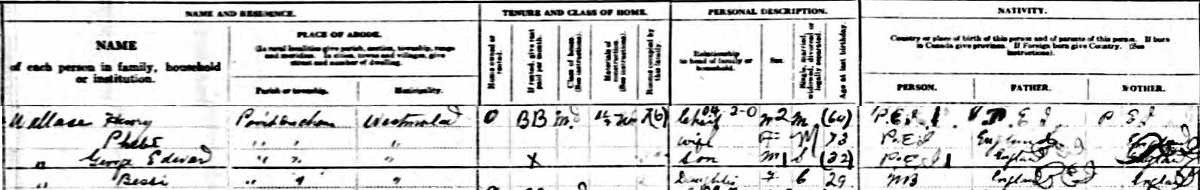 NAME AND RESIDENCE. TENURE AND CLASS OF HOME. PERSONAL DESCRIPTION. NATIVITY.
NAME
of each person in family, household
or institution.
PLACE OF ABODE.
(In rural localities give parish, section, township, range
and meridian. In cities, towns and villages, give
street and number of dwelling.)
Parish or township. Municipality.
Home owned or
rented.
If rented, give rent
paid per month.
Class of home
(See instructions).
Materials of
construction (See
instructions).
Rooms occupied by
this family.
Relationship
to head of family or
household.
Sex.
Single, married,
widowed, divorced or
legally separated.
Age at last birthday.
Country or place of birth of this person and of parents of this person. If born
in Canada give province. If Foreign born give Country. (See
instructions).
PERSON. FATHER. MOTHER.
Wallase Henry Westmorland O BB 7(6) 2-0 M 2 M (60) P.E.I. P E I P E I
Phebe " " " wife F M 73 P.E.I England England
" George Edward " " " X Son M S (32) P.E.I England
" Bessi " " " Daughter F 29 NB England England